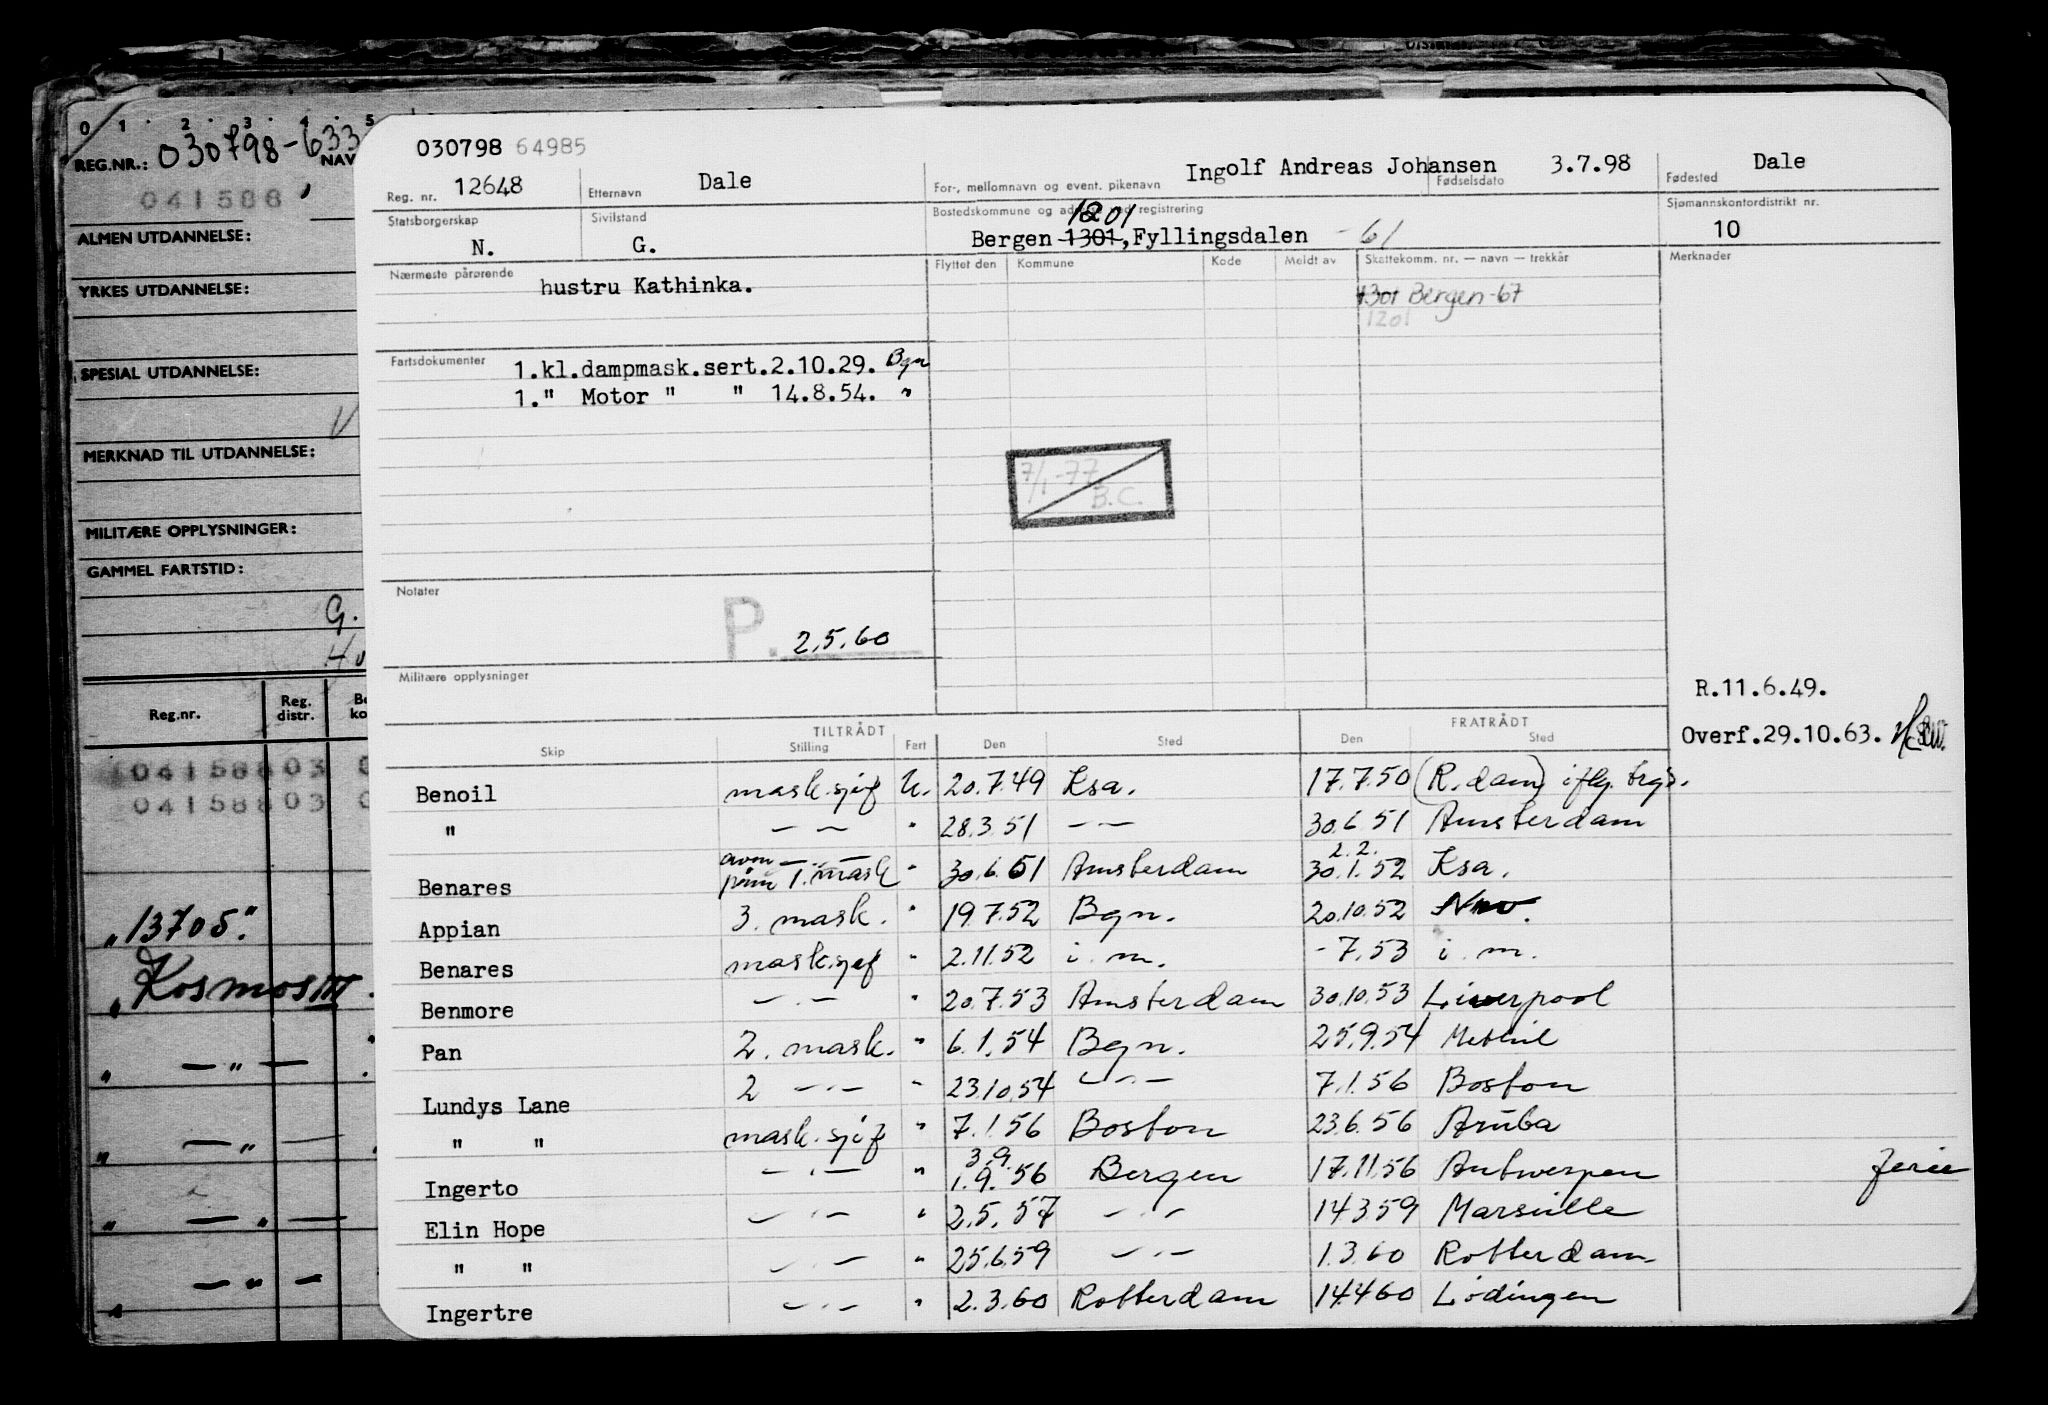 0 1 2 3 4 5
REG.NR.: 030798-633 NAV
041588
ALMEN UTDANNELSE:
YRKES UTDANNELSE:
SPESIAL UTDANNELSE:
MERKNAD TIL UTDANNELSE:
MILITÆRE OPPLYSNINGER:
GAMMEL FARTSTID:
G.
Reg.nr. Reg. distr.
041588 03
041588 03
"13705"
"Kosmos III
" — " —
" — " —
" — " —
" — " —
030798 64985
Reg. nr. 12648 Etternavn Dale For-, mellomnavn og event. pikenavn Ingolf Andreas Johansen Fødselsdato 3.7.98 Fødested Dale
Statsborgerskap N. Sivilstand G. Bostedskommune og adresse ved registrering Sjømannskontordistrikt nr. 10
1201
Bergen 1301, Fyllingsdalen -61
Nærmeste pårørende hustru Kathinka.
Flyttet den Kommune Kode Meldt av Skattekomm. nr. — navn — trekkår Merknader
1301 Bergen-67
1201
Fartsdokumenter 1.kl.dampmask.sert.2.10.29. Bgn
1." Motor " " 14.8.54. "
7/1-77
B.C.
Notater P. 2.5.60
Militære opplysninger
R.11.6.49.
Overf.29.10.63.
TILTRÅDT FRATRÅDT
Skip Stilling Fart Den Sted Den Sted
Benoil mask.sjef U. 20.7.49 Ksa. 17.7.50 (R.dam) iflg. brgs.
" — — " 28.3.51 — — 30.6.51 Amsterdam
Benares 1. mask " 30.6.51 Amsterdam 2.2. 30.1.52 Ksa.
Appian 3. mask. " 19.7.52 Bgn. 20.10.52
Benares mask.sjef " 2.11.52 i. m. - 7.53 i. m.
Benmore — " — " 20.7.53 Amsterdam 30.10.53 Liverpool
Pan 2. mask. " 6.1.54 Bgn. 25.9.54 Methil
Lundys Lane 2 — " — " 23.10.54 — " — 7.1.56 Boston
" " mask.sjef " 7.1.56 Boston 23.6.56 Aruba
Ingerto — " — " 3.9. 1.9.56 Bergen 17.11.56 Antwerpen ferie
Elin Hope — " — " 2.5.57 — " — 14.3.59 Marseille
" " — " — " 25.6.59 — " — 1.3.60 Rotterdam.
Ingertre — " — " 2.3.60 Rotterdam 14.4.60 Lødingen